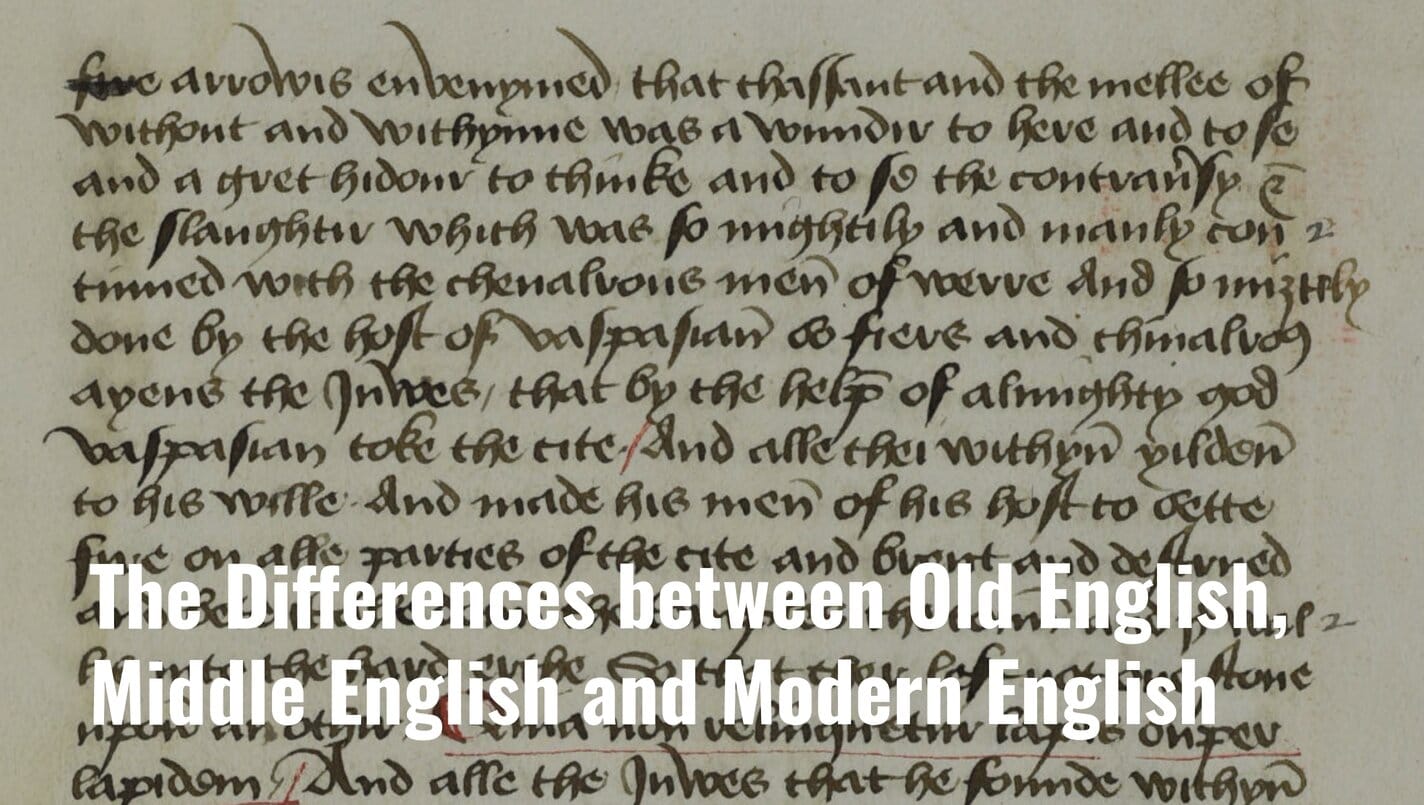 arrowis envenymed that thassaut and the mellee of
without and withynne was a wundir to here and to se
and a gret hidour to thinke and to se the contrauersy &
the slaughtir which was so mightily and manly con
tinued with the cheualrous men of werre And so miȝtely
done by the host of vaspasian so fiers and chiualrous
ayens the Juwes / that by the help of almighty god
vaspasian toke the cite / And alle thei withyn yilden
to his wille And made his men of his host to sette
fire on alle parties of the cite and brent and
The Differences between Old English,
the hard erthe So that stone
Middle English and Modern English
upon an othir non relinquetur lapis super
lapidem / And alle the Juwes that he founde withyn